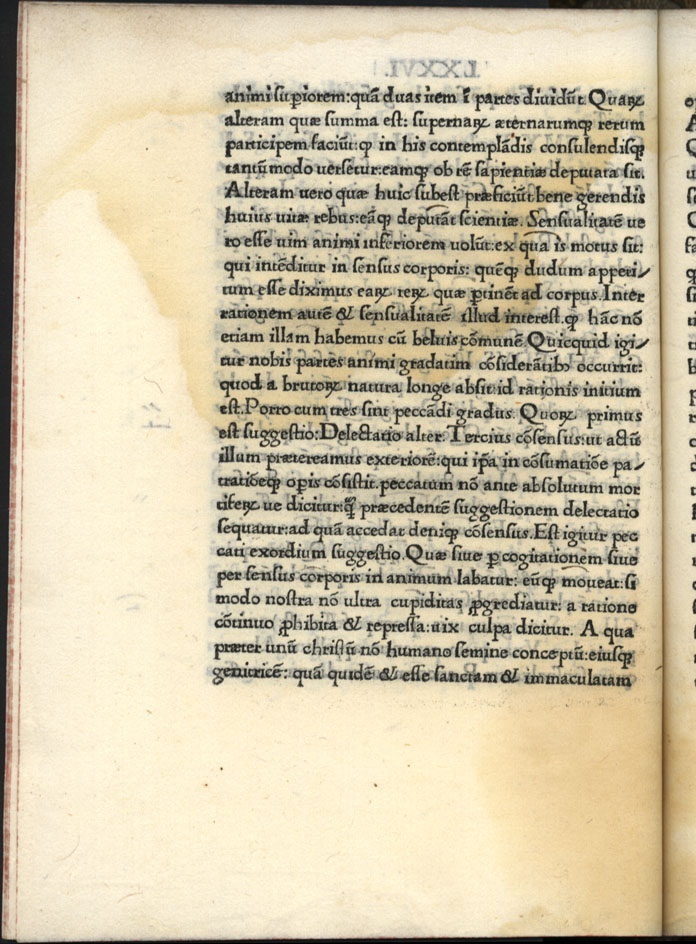 animi supiorem:quā duas itē ī partes diuidūt Quaꝝ
alteram quæ summa est: supernaꝝ æternarumqꝫ rerum
participem faciūt:ꝙ in his contemplādis consulendisqꝫ
tantūmodo uersetur:eamqꝫ ob rē sapientiæ deputata sit.
Alteram uero quæ huic subest præficiūt bene gerendis
huius uitæ rebus:eāqꝫ deputāt scientiæ. Sensualitatē ue
ro esse uim animi inferiorem uolūt:ex qua is motus sit:
qui intēditur in sensus corporis: quēqꝫ dudum appeti/
tum esse diximus eaꝝ reꝝ quæ ꝑtinēt ad corpus.Inter
rationem autē & sensualitatē illud interest.ꝙ hāc nō
etiam illam habemus cū beluis cōmunē Quicquid igi/
tur nobis partes animi gradatim cōsiderātibꝰ occurrit:
quod a brutoꝝ natura longe absit:id rationis initium
est.Porro cum tres sint peccādi gradus. Quoꝝ primus
est suggestio:Delectatio alter: Tercius cōsensus:ut actū
illum prætereamus exteriorē:qui ip̄a in cōsumatiōe pa/
tratiōeqꝫ opis cōsistit.peccatum nō ante absolutum mor
tifeꝝ ue dicitur:ꝙ̃ præcedentē suggestionem delectatio
sequatur:ad quā accedat deniqꝫ cōsensus.Est igitur pec
cati exordium suggestio.Quæ siue ꝑ cogitationem siue
per sensus corporis in animum labatur: eūqꝫ moueat:si
modo nostra nō ultra cupiditas ꝓgrediatur: a ratione
cōtinuo ꝓhibita & repressa:uix culpa dicitur. A qua
præter unū christū nō humano semine conceptū:eiusqꝫ
genitricē: quā quidē & esse sanctam & immaculatam